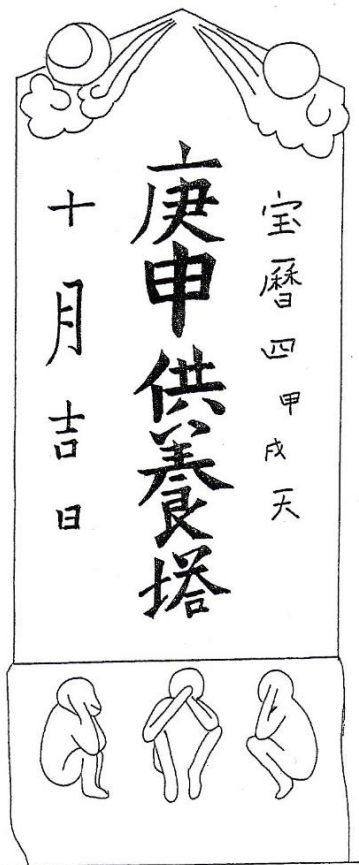 宝暦四甲戌天
庚申供養塔
十月吉日